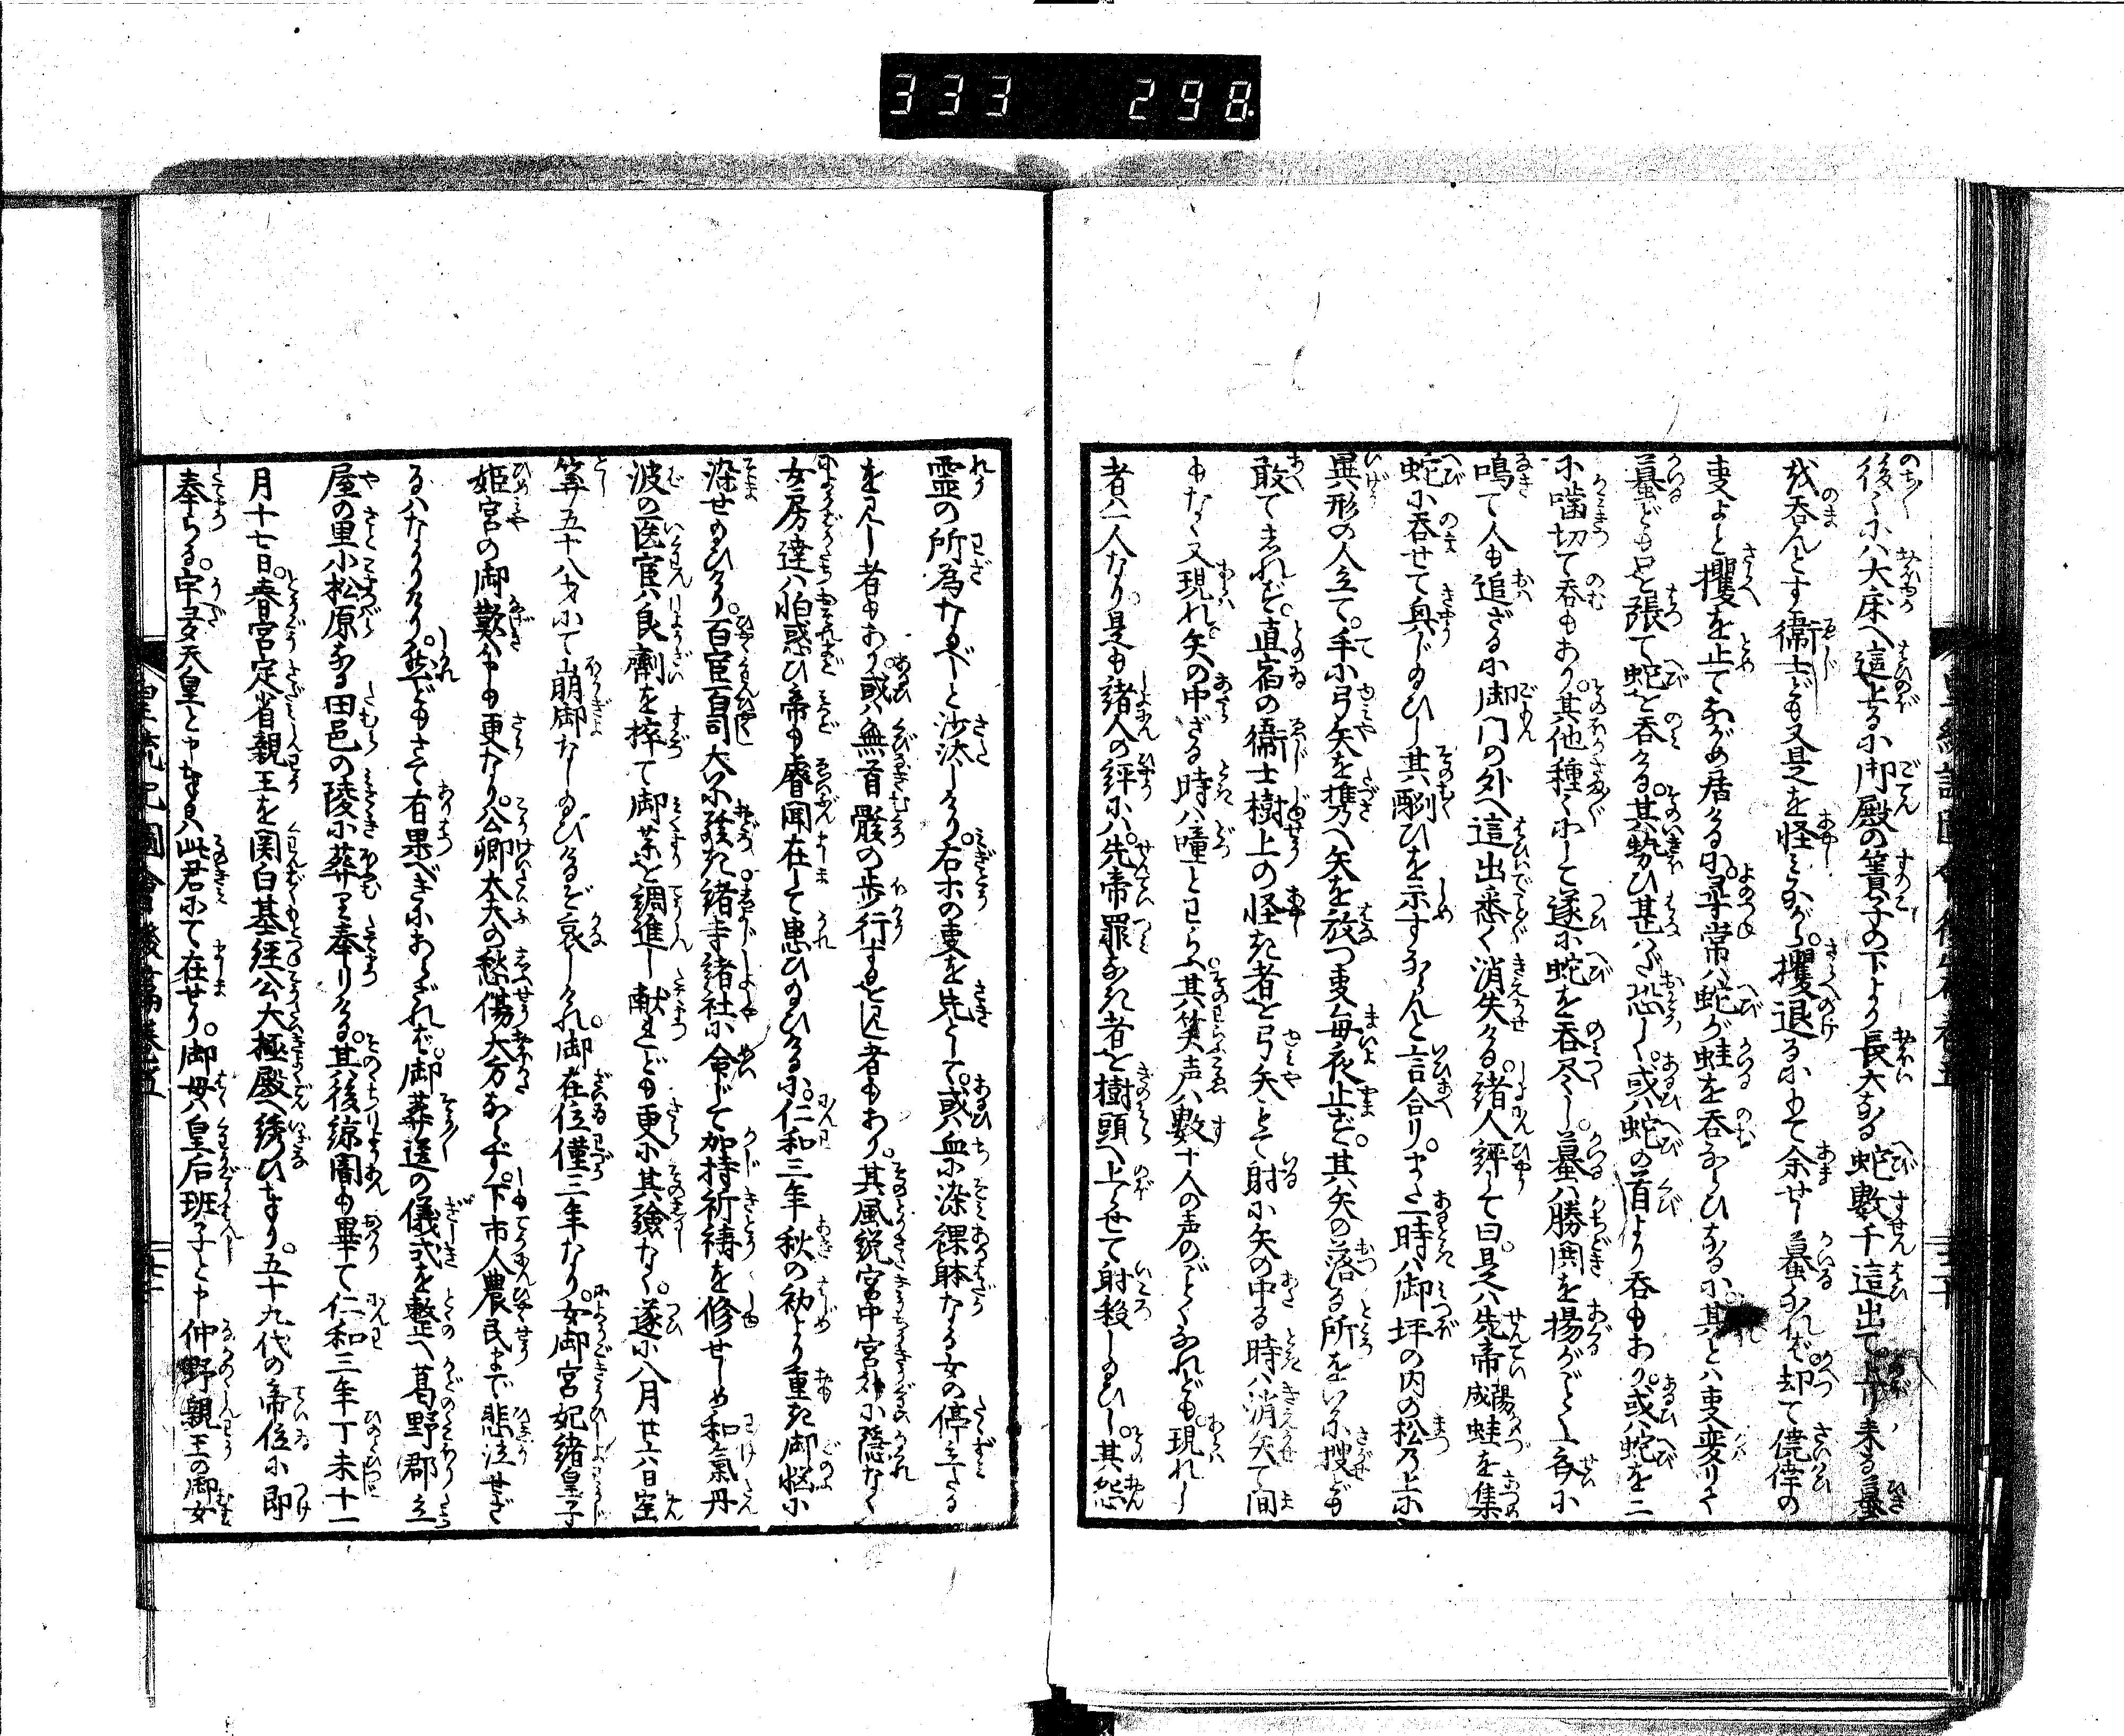 333 298
後々ハ大床へ這上る小御殿の簀子の下より長大なる蛇數千這出て上り来る蟇
を呑んとす衞士ども又是を怪ミながら攫退るにもて余せし蟇なれバ却て僥倖の
事よと攫を止てながめ居ける小尋常ハ蛇が蛙を呑ならひなる小其とハ事変りて
蟇ども口を張て蛇を呑ける其勢ひ甚だ恐しく或ハ蛇の首より呑もあり或ハ蛇を二
小噛切て呑もあり其他種々にして遂小蛇を呑尽し蟇ハ勝鬨を揚がごとく一斉小
鳴て人も追ざる小御門の外へ這出悉く消失ける諸人評て曰是ハ先帝陽成蛙を集
蛇小呑せて興じ給ひし其酬ひを示すならんと言合りまた一時ハ御坪の内の松乃上小
異形の人立て手小弓矢を携へ矢を放つ事毎夜止ず其矢の落る所をいか小搜ども
敢てあれず直宿の衞士樹上の怪き者を弓矢とて射小矢の中る時ハ消失て間
もなく又現れ矢の中ざる時ハ瞳とわらふ其笑声ハ數十人の声のごとくなれども現れし
者ハ一人なり是も諸人の評小ハ先帝罪なき者を樹頭へ上らせて射殺し給ひし其怨
霊の所為なるべしと沙汰しけり右等の事を先として或ハ血小染裸躰なる女の停立たる
を見し者もあり或ハ無首骸の歩行すを見し者もあり其風説宮中宮外小隠なく
女房達ハ怕惑ひ帝も睿聞在して患ひ給ひける小仁和三年秋の初より重き御悩小
染せ給ひけり百官百司大小駭き諸寺諸社小命じて加持祈祷を修せしめ和氣丹
波の医官ハ良劑を撰て御薬を調進し献れども更小其験なく遂小八月廿六日寳
筭五十八才小て崩御なし給ひけるぞ哀しけれ御在位僅三年なり女御宮妃諸皇子
姫宮の御歎ハ申も更なり公卿大夫の愁傷大方ならず下市人農民まで悲泣せざ
るハなかりけり然どもさて有果べきにあらざれバ御葬送の儀式を整へ葛野郡立
屋の里小松原なる田邑の陵小葬り奉りける其後諒闇も畢て仁和三年丁未十一
月十七日春宮定省親王を関白基経公大極殿へ誘ひまゐり五十九代の帝位小即
奉らる宇多天皇と申奉るハ此君にて在せり御母ハ皇后班子と申仲野親王の御女
皇統記圖會後編巻五